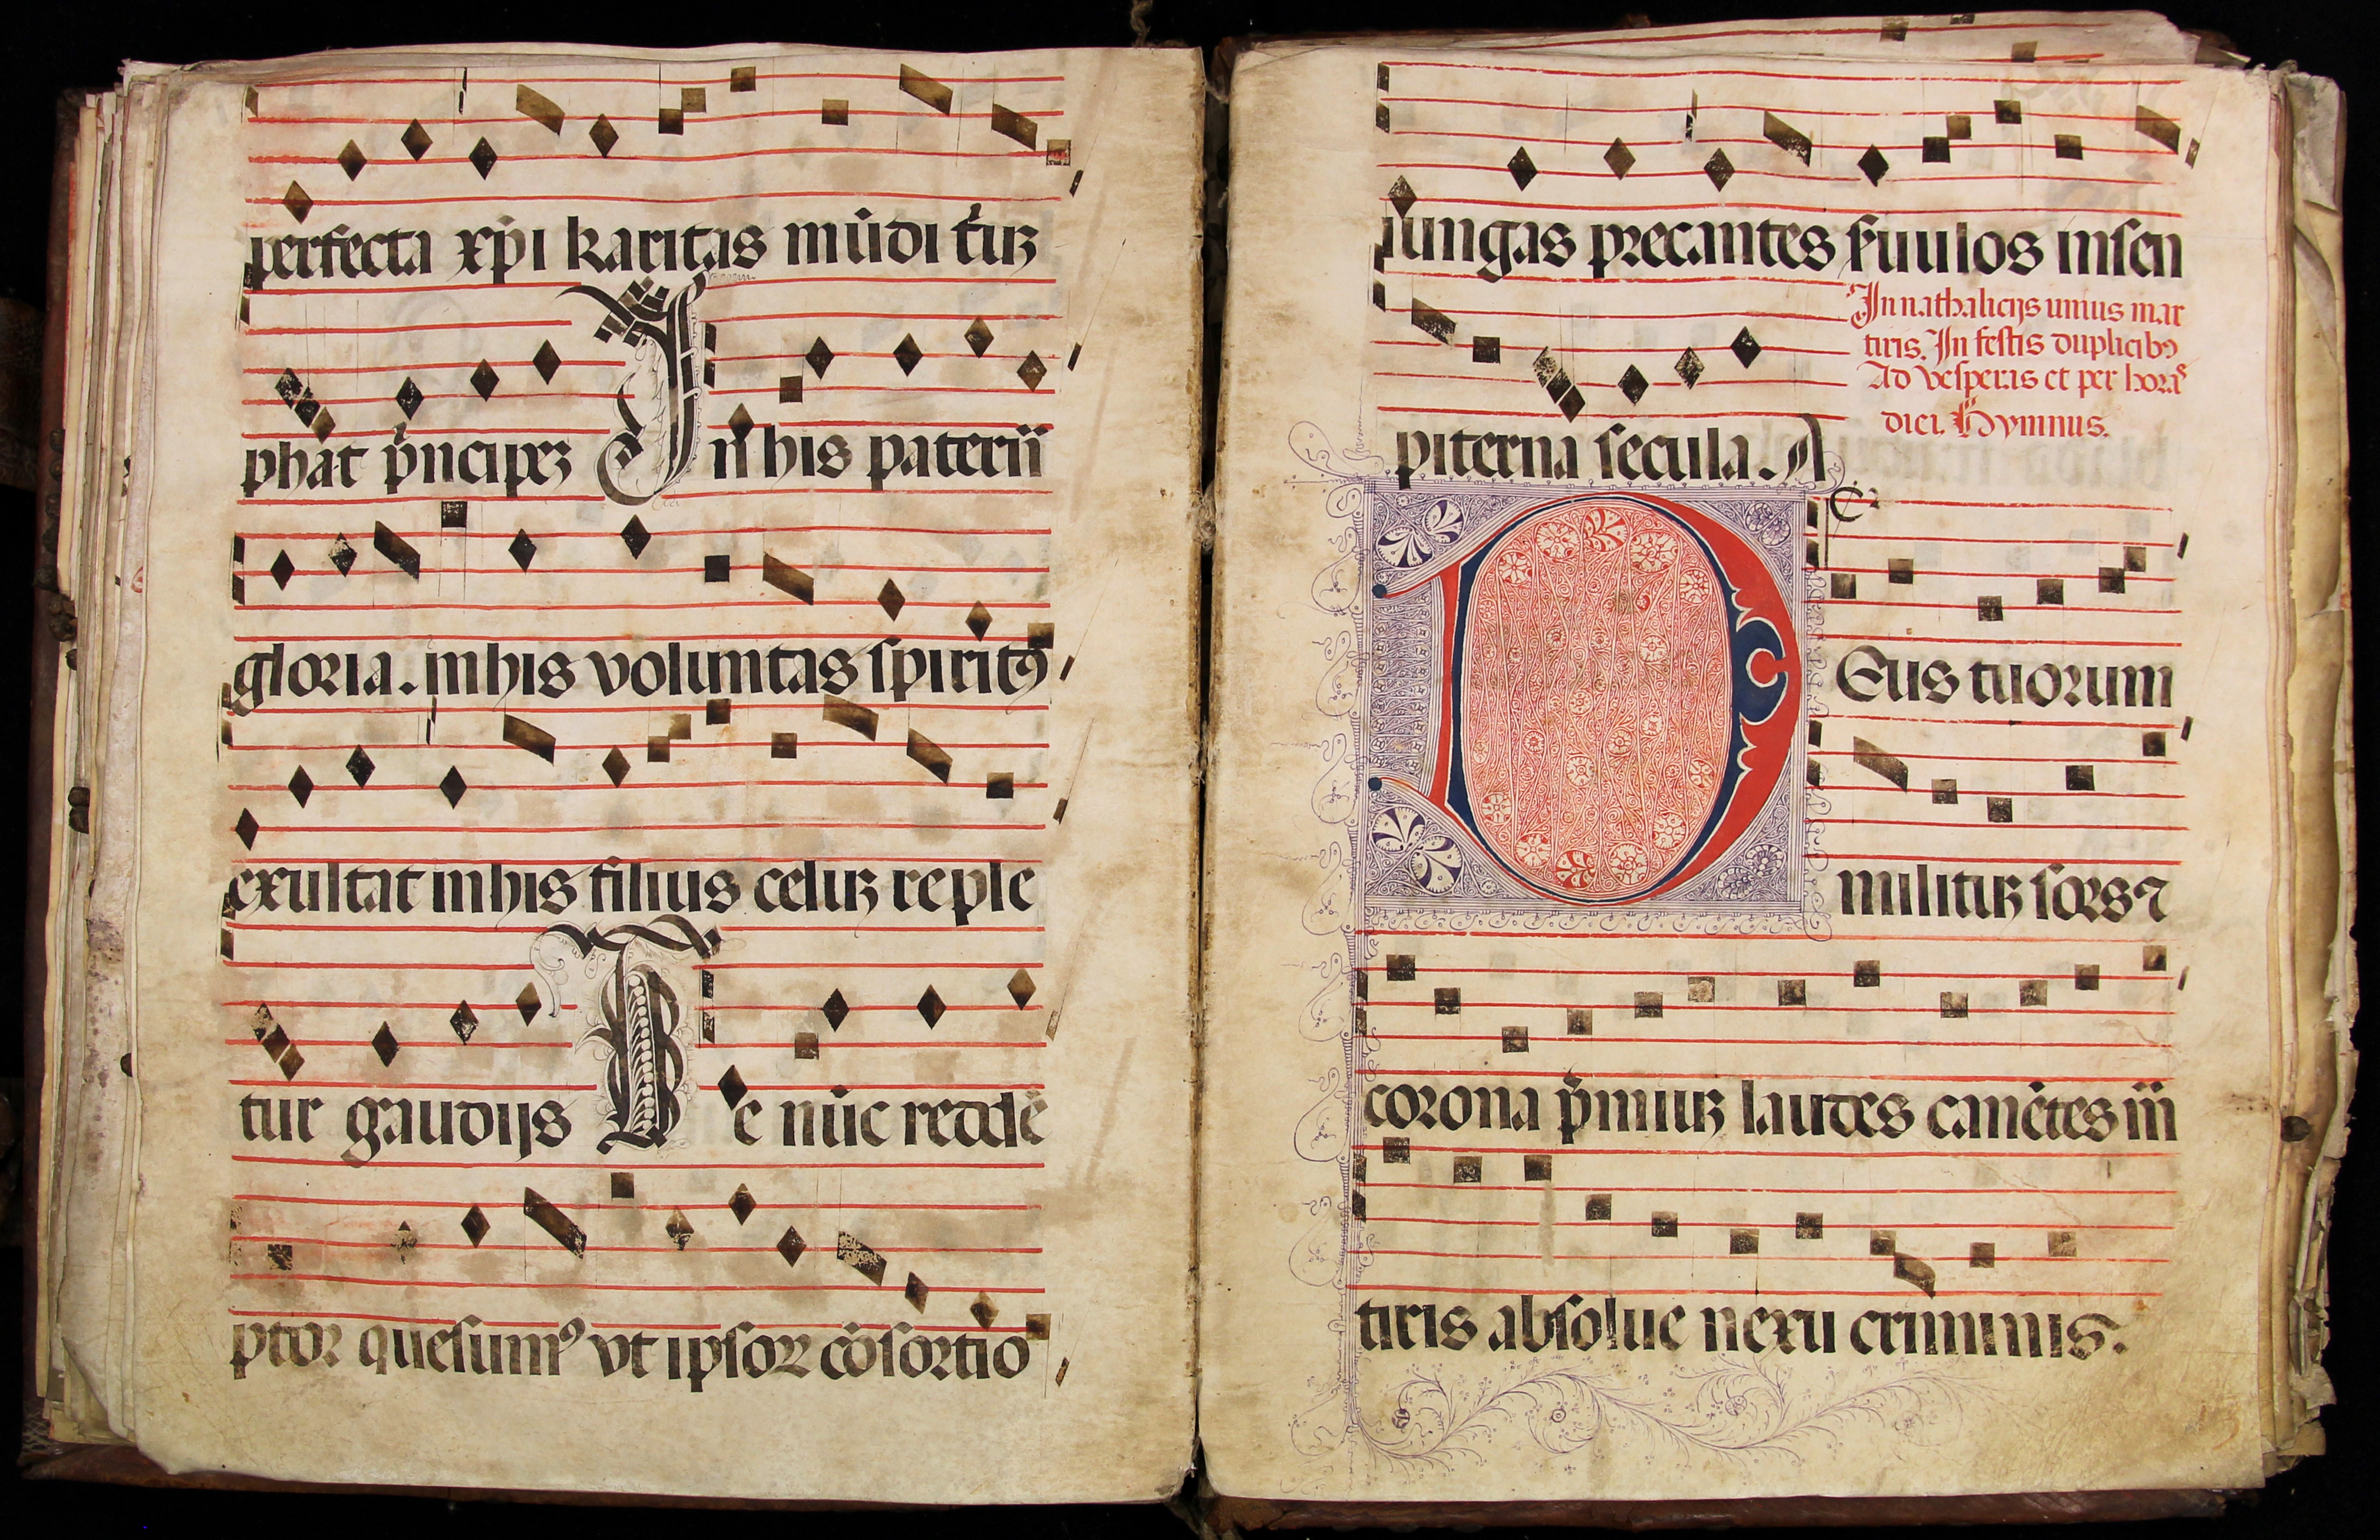 perfecta xp̄i karitas mūdi t̄ıuꝫ
phāt p̄ncipeꝫ In his paterīī
gloria. in his voluntas spiritꝯ
exultat in his filius celiꝫ reple
tur gaudijs Te nūc redde̅
ptor quesumꝰ vt ipsoꝝ cōsortio
iungas precantes s̄uulos in sen
In nathalicijs unius mar
tiris. In festis duplicibꝯ
Ad vesperas et per horas
dici. Hymnus.
piterna secula. A
Deus tuorum
militiꝫ sors ⁊
corona p̄miuꝫ laudes canētes m̄
tiris absolue nexu criminis.